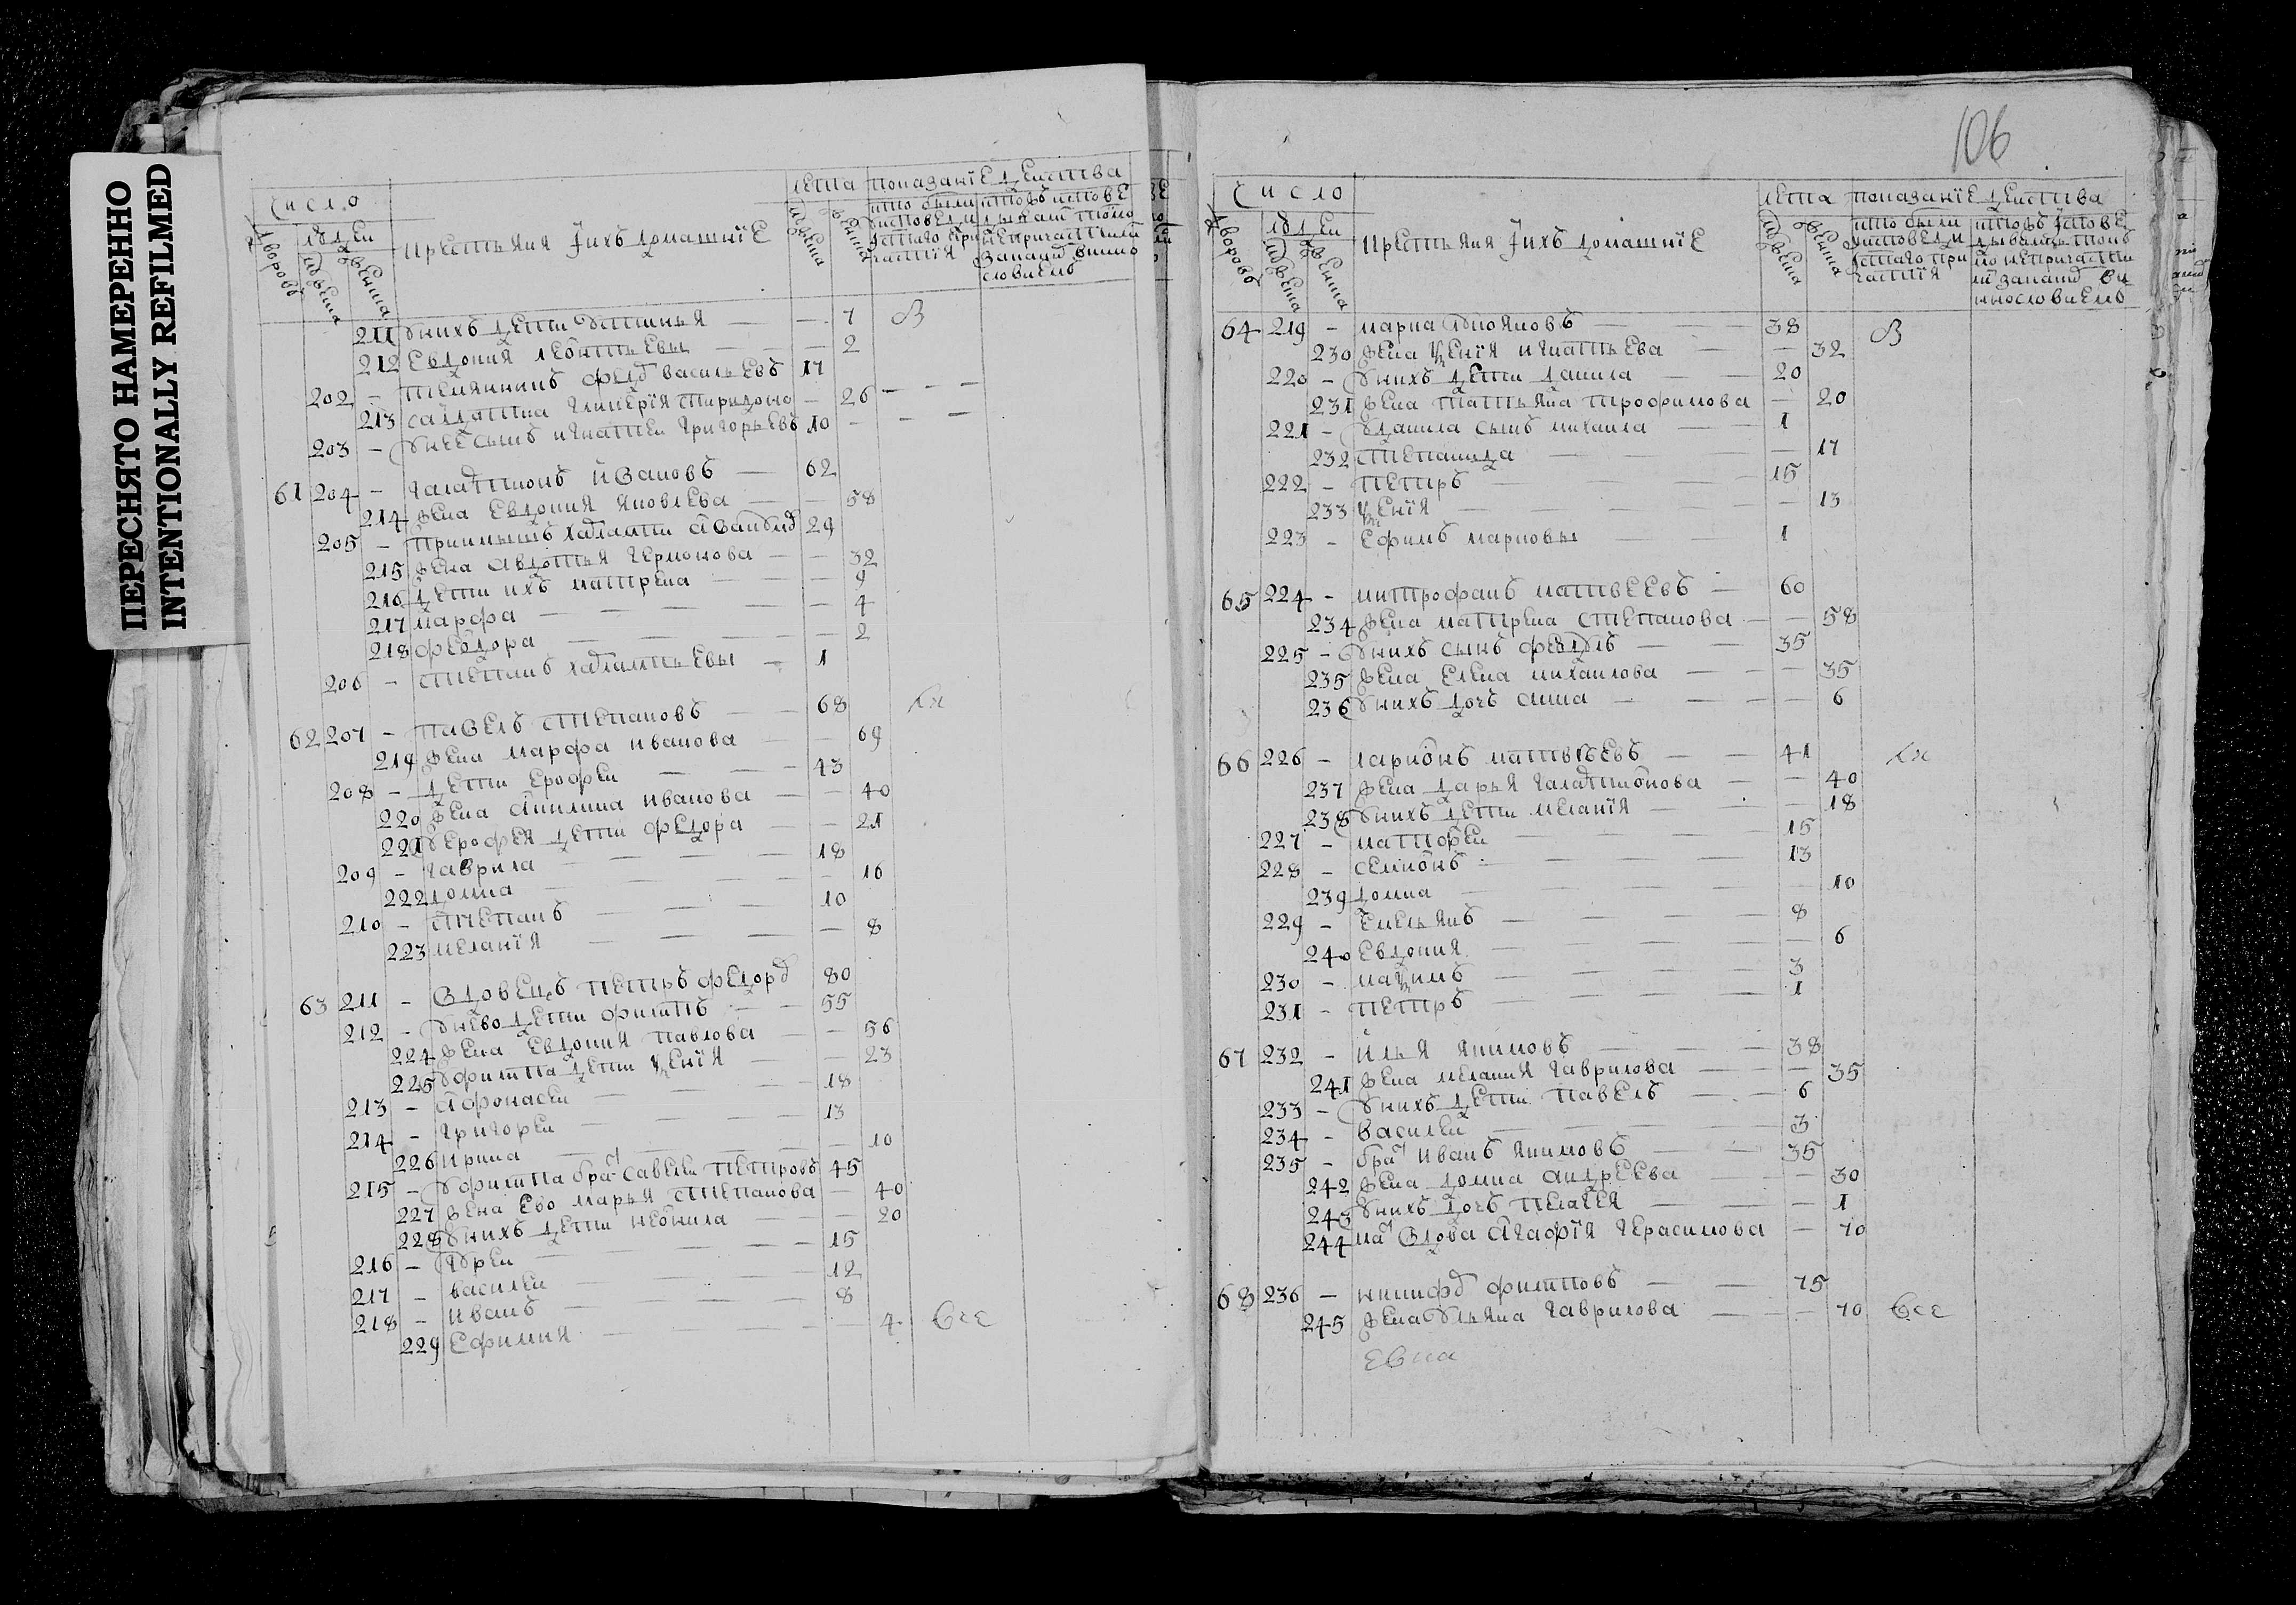 ПЕРЕСНЯТО НАМЕРЕННО
INTENTIONALLY REFILMED
число
лета показание действа
дворовъ
людей
мужеска
женска
крестьяня и ихъ домашние
мужеска
женска
211 у нихъ дети устинья — — 7 В
212 евдокия леонтьевы — — 2
202 - племянникъ федръ васильевъ 17
213 салдатка гликерия спиридоно — 26 - - -
203 - у нее сынъ игнатей григорьевъ 10 - - -
61 204 - галактионъ ивановъ — 62
214 жена евдокия яковлева — — 58
205 - приимышъ 29
215 жена авдотья — — 32
216 дети ихъ матрена — — 9
217 марфа — — 4
218 федора — — 2
206 - степанъ — 1
62 207 - павелъ степановъ — 68
219 жена марфа иванова — — 69
208 - дети ерофеи — — 43
220 жена акилина иванова — — 40
221 у ерофея дети федора — — 21
209 - гаврила — — 18
222 домна — — 16
210 - степанъ — — 10
223 мелания — — 8
63 211 - вдовецъ петръ федоро 80
212 - у нево дети филипъ — — 55
224 жена евдокия павлова — — 56
225 у филипа дети ксения — — 23
213 - афонасеи — — 18
214 - григореи — — 13
226 ирина — — 10
215 - у филипа братъ савелеи петровъ 45
227 жена ево марья степанова — 40
228 у нихъ дети неонила — — 20
216 - — — 15
217 - василеи — — 12
218 - иванъ — — 8
229 ефимия — — 4 все
106
число
лета показание действа
дворовъ
людей
мужеска
женска
крестьяня и ихъ домашние
мужеска
женска
64 219 - марка лукояновъ — — 38 В
230 жена ксения игнатьева — — 32
220 - у нихъ дети данила — 20
231 жена татьяна трофимова — 20
221 - у данила сынъ михаила — — 1
232 степанида — — 17
222 - петръ — — 15
233 ксения — — 13
223 - ефимъ марковы — — 1
65 224 - митрофанъ матвеевъ — 60
234 жена матрена степанова — — 58
225 - у нихъ сынъ — — 35
235 жена елена михаилова — — 35
236 у нихъ дочь анна — — 6
66 226 - ларионъ матвѣевъ — — 41
237 жена дарья галактионова — — 40
238 у нихъ дети мелания — — 18
227 - матфеи — — 15
228 - семионъ — — 13
239 домна — — 10
229 - емельянъ — — 8
240 евдокия — — 6
230 - максимъ — — 3
231 - петръ — — 1
67 232 - илья якимовъ — — 38
241 жена мелания гаврилова — — 35
233 - у нихъ дети павелъ — — 6
234 - василеи — — 3
235 - братъ иванъ якимовъ — — 35
242 жена домна андреева — — 30
243 у нихъ дочь пелагея — — 1
244 мать вдова агафия герасимова — 70
68 236 - никифоръ филиповъ — — 75
245 жена ульяна гаврилова — — 70 все